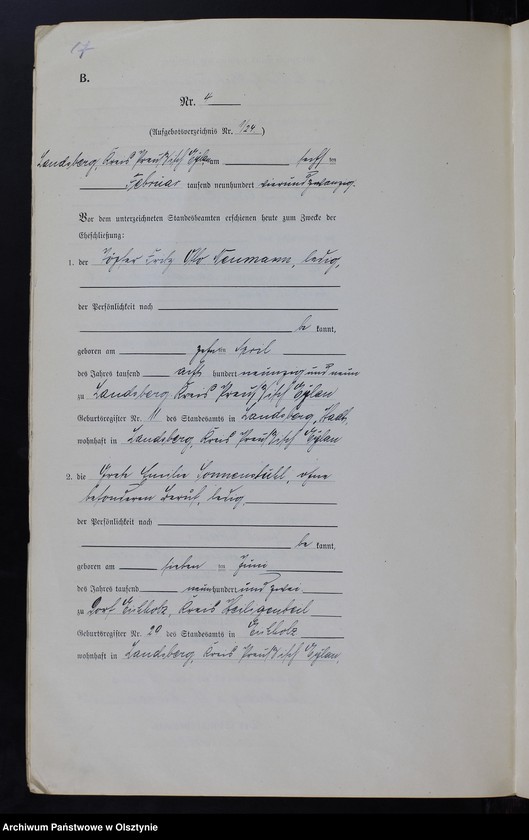 B.
Nr. 4
(Aufgebotsverzeichnis Nr. 1/24)
Landsberg, Kreis Preußisch Eylau am sechsten
Februar tausend neunhundert vierundzwanzig.
Vor dem unterzeichneten Standesbeamten erschienen heute zum Zwecke der
Eheschließung:
1. der Töpfer Fritz Otto Neumann, ledig,
der Persönlichkeit nach
be kannt,
geboren am zehnten April
des Jahres tausend acht hundert neunzig und neun
zu Landsberg, Kreis Preußisch Eylau
Geburtsregister Nr. des Standesamts in Landsberg, Stadt,
wohnhaft in Landsberg, Kreis Preußisch Eylau
2. die Grete Emilie Sonnenstuhl, ohne
besonderen Beruf, ledig,
der Persönlichkeit nach
be kannt,
geboren am siebenten Juni
des Jahres tausend neunhundert und zwei
zu Dorf Eichholz, Kreis Heiligenbeil
Geburtsregister Nr. 20 des Standesamts in Eichholz
wohnhaft in Landsberg, Kreis Preußisch Eylau,
Archiwum Państwowe w Olsztynie